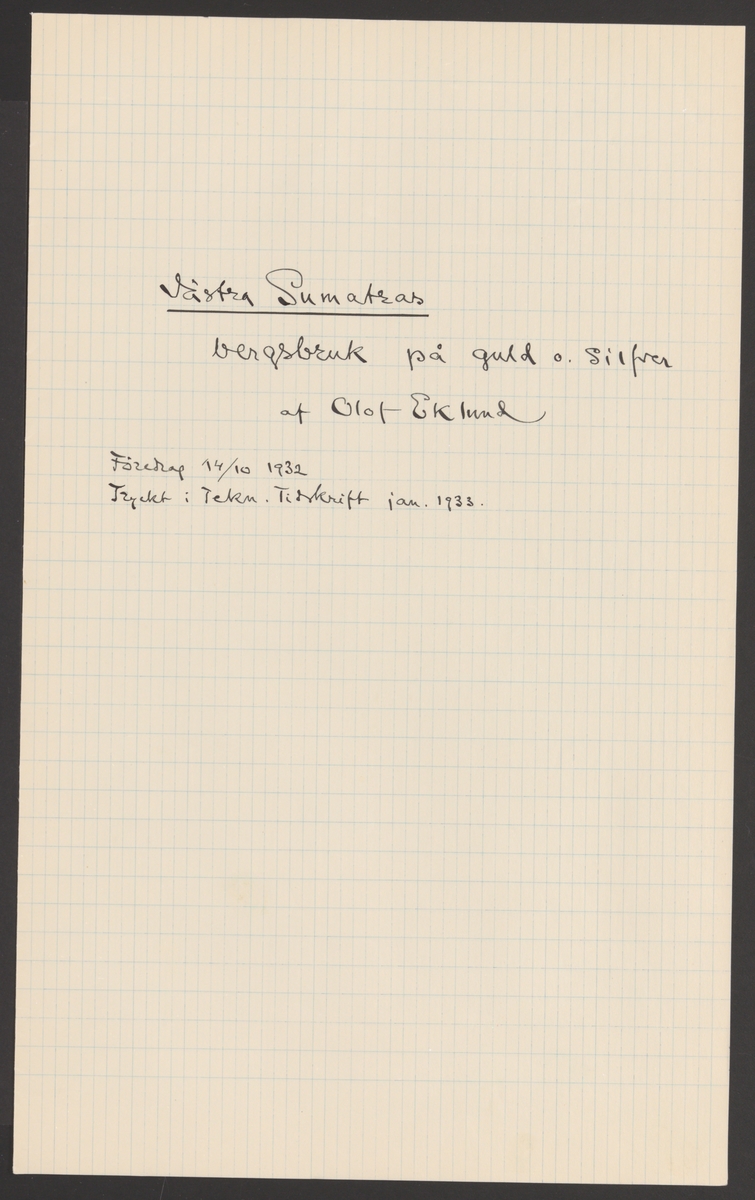 Västra Sumatras
bergsbruk på guld o. Silfver
af Olof Eklund
Föredrag 14/10 1932
Tryckt i Tekn. Tidskrift jan. 1933.